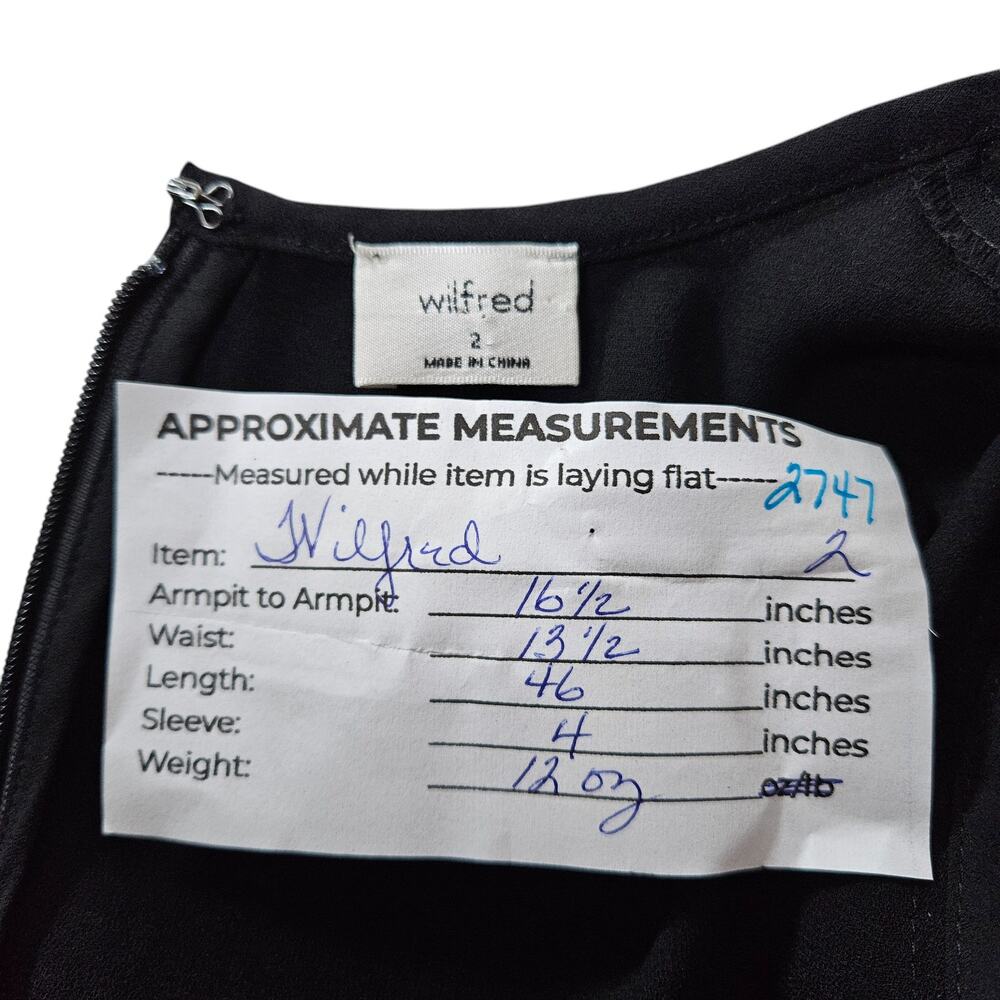 wilfred
2
MADE IN CHINA
APPROXIMATE MEASUREMENTS
-----Measured while item is laying flat-----
2747
Item: Wilfred 2
Armpit to Armpit: 16 1/2 inches
Waist: 13 1/2 inches
Length: 46 inches
Sleeve: 4 inches
Weight: 12 oz oz/lb